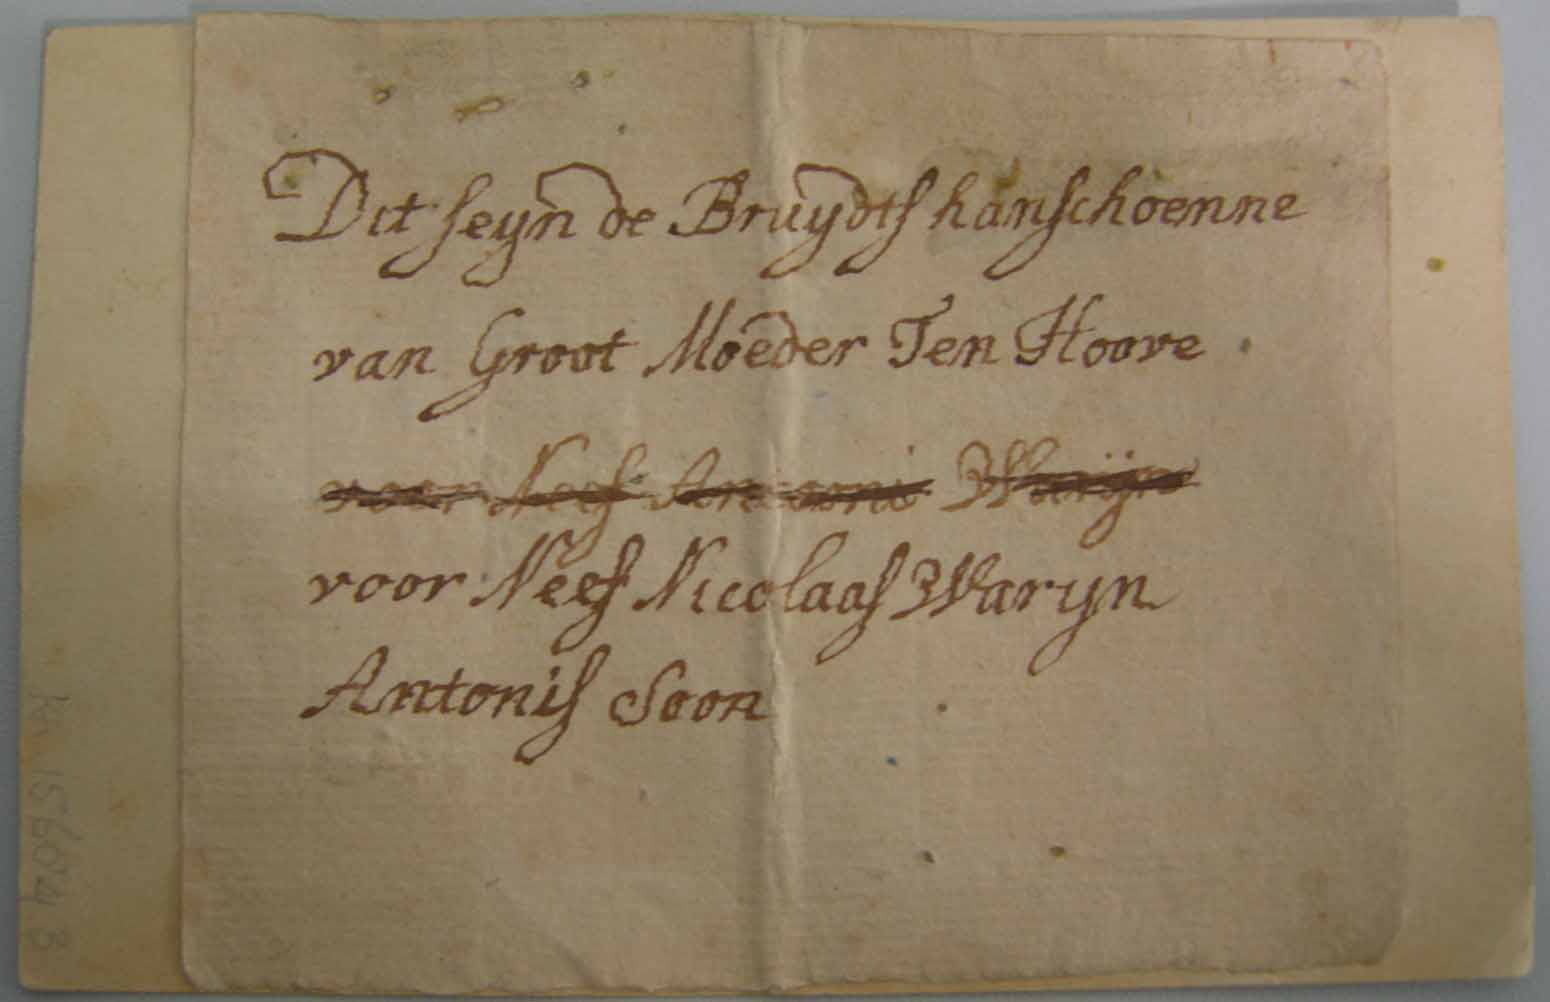 Dit seyn de Bruydts hanschoenne
van Groot Moeder Ten Hoove
voor Neef Antonis Warijn
voor Neef Nicolaas Waryn
Antonis Soon
15604 B